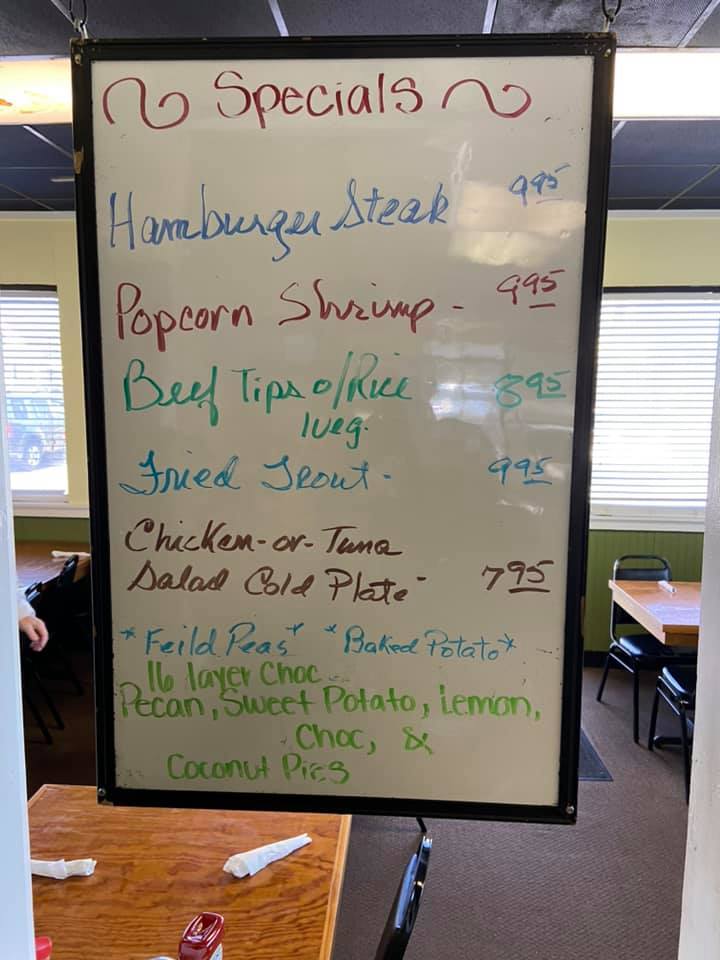 Specials
Hamburger Steak 995
Popcorn Shrimp - 995
Beef Tips o/Rice 895
1 veg.
Fried Trout - 995
Chicken-or-Tuna
Salad Cold Plate - 795
*Feild Peas* *Baked Potato*
16 layer Choc
Pecan, Sweet Potato, Lemon,
Choc, &
Coconut Pies